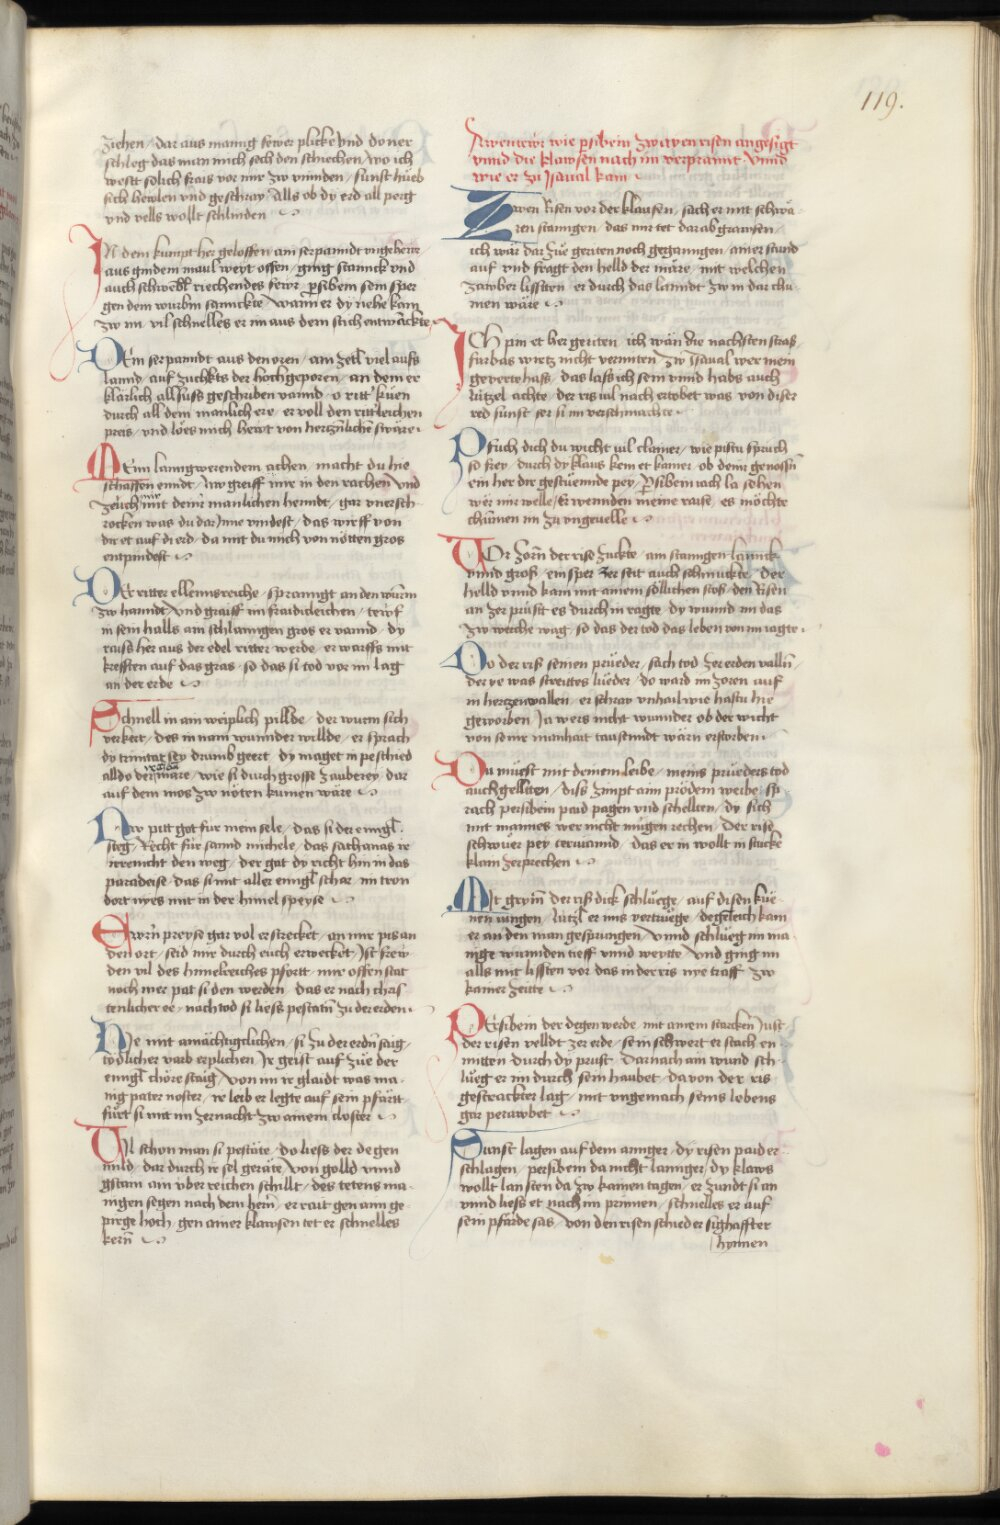 119.
ziehen / dar aus manig fewer plicke vnd doner
schleg das man mich sech den schiechen / wo ich
westt solich frais vor mir zw vinnden / sunst hueb
sich hewlen vnd geschray / Alls ob dy erd all perg
vnd vells wollt schlinden
IN dem kumpt her geloffen / ain serpanndt vngehewr
aus gindem maul weyt offen / ging stannck vnd
auch schwebl riechendes fewr / persibein sein sper
gen dem wurbm sannckte / wann er dy nehe kam
zw im / vil schnelles er im aus dem stich entwanckte
DEm serpanndt aus den oren / ain zetl viel aufs
lannd / auf zuckts der hochgeporen / an dem er
klärlich allsuss geschriben vannd / o ritter kuen
durch all dein manlich ere / er voll den ritterleichen
preis / vnd löes mich hewt von hertznlicher swäre
MEim lanngwerendem achen / macht du hie
schaffen ennd / Nw greiff mir in den rachen vnd
zeuch mit deinr manlichen henndt / gar vnersch
rocken was du dar Inne vindest / das wirff von
dir et auf di erd / da mit du mich von nötten gros
enntpindest
DEr ritter ellennsreiche / spranngt an den wurm
zw hanndt / vnd graiff im fraidicleichen / teiff
in sein halls ain schlanngen gros er vannd / dy
raiss her aus der edel ritter werde / er warffs mit
krefften auf das gras / so das si tod vor im lag
an der erde
Schnell in ain weiplich pillde / der wurm sich
verkert / des in nam wunnder willde / er sprach
dy trinitat sey drumb geert / dy maget in peschied
alldo der märe / wie si durch grosse zauberey / dar
auf dem mos zw nöten kumen wäre
Nw pitt got für mein sele / das si der enngl
steg / Recht für sannd michele / das sathanas ir
irre nicht den weg / der gat dy richt hin in das
paradeise / das si mit aller enngl schar / im tron
dort nyes mit in der himel speyse
Ewrn preyse gar vol erstrecket / an mir pis an
den ort / seid mir durch euch erwecket / Ist frew
den vil des himelreiches pfortt / mir offen stat
noch mer pat si den werden / das er nach chris
tenlicher ee / nach tod si liess pestatn zu der erden
Hie mit amächtigclichen / si zu der erdn saig /
tödlicher varb erplichen / Ir geist auf züe der
enngl chöre staig / von im ir glaidt was ma
nig pater noster / ir leib er legte auf sein pfärtt
fuert si mit im zernacht zw ainem closter
Vil schon man si pestäte / do liess der degen
milld / dar durch ir sel geräte / von golld vnnd
gstain ain vber reichen schillt / des tetens ma
nigen segen nach dem hern / er rait gen ainm ge
pirge hoch / gen ainer klawsen tet er schnelles
kern
Awentewr wie persibein zwayen risen angesigt
vnnd die klawsen nach im verprannt vnnd
wie er zu Issaual kam
ZWen Risen vor der klausen / sach er mit schwä
ren stanngen / das mir tet darab grawsen /
ich wär dar zue geriten noch geganngen / ainer stund
auf vnd fragt den helld der märe / mit welchen
zawber lissten / er durch das lanndt zw in dar chu
men wäre
ICh pin et her geriten / ich wän die nachsten strass
furbas wirtz nicht vermiten / zw Issaual wer mein
geverte hass / das lass ich sein vnnd habs auch
lützel achte / der ris vil nach ertobet was / von diser
red sunst ser si im verschmachte
Pfuch dich du wicht vil clainer / wie pistu spruch
so frey / durch dy klaus kem et kainer / ob deinr genossen
ein her dir gestuennde pey / Persibein ach la sehen
wer mir welle / Erwennden meine raise / es möchte
chumen im zu vngeuelle
VOr zorn der rise zuckte / ain stanngen lannck
vnnd gross / ein sper zer seit auch schmuckte / der
helld vnnd kam mit ainem söllichen stoss / den Risen
an zer prüst es durch in ragte / dy wunnd im das
zw weiche wag / so das der tod das leben von im iagte
Do der ris seinen prüeder / sach tod zer erden valln
der ye was streittes lueder / do ward im zoren auf
in hertzen wallen / er schray vnhail wie hastu hie
geworben / Ja wers nicht wunnder ob der wicht
von seinr manhait tausenndt wärn erstorben
Da müest mit deinem leibe / meins prueders tod
auch gelltten / diss zimpt ainm prödem weibe / sp
rach persibein paid pagen vnd schellten / dy sich
mit mannes wer nicht mügen rechen / Der rise
schwuer pey teruiannd / das er in wollt in stucke
klain zerprechen
Mit grymm der ris dick schluege / auf disen küe
nen iungen / lützl er ims vertruege / degeleich kam
er an den man gesprungen / vnnd schlueg im ma
nige wunnden tieff vnnd weytte / vnd ging im
alls mit lissten vor das in der ris nye traff / zw
kainer zeitte
PErsibein der degen werde / mit ainem starcken Just
der risen velldt zer erde / sein schwert er stach en
mitten durch dy prust / Darnach ain wund sch
lueg er im durch sein haubet / da von der ris
gestrackter lag / mit vngemach seins lebens
gar petawbet
Sunst lagen auf dem annger / dy risen paid er
schlagen / persibein da nicht lannger / dy klaws
wollt lan sten da zw kainen tagen / er zundt si an
vnnd liess et nach im prinnen / schnelles er auf
sein pfärde sas / von den risen schied er sighaffter
hynnen